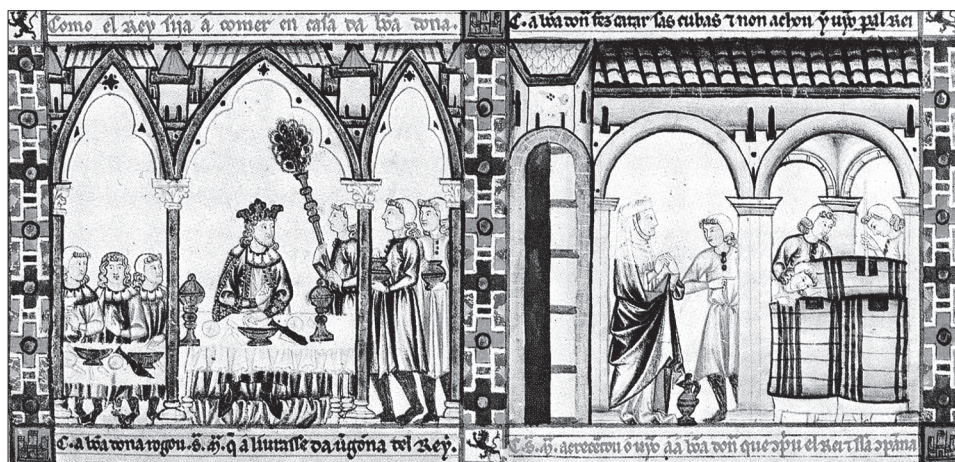 Como el Rey sija a comer en casa da bõa dona.
C. a bõa don̄ fez catar sas cubas ⁊ non achou y uỹo pal Rei
C. a bõa dona rogou. S. M. q̄ a liurasse da ũgonna del Rey.
C. S. M. acrecentou o uỹo aa bõa don̄ que el Rei